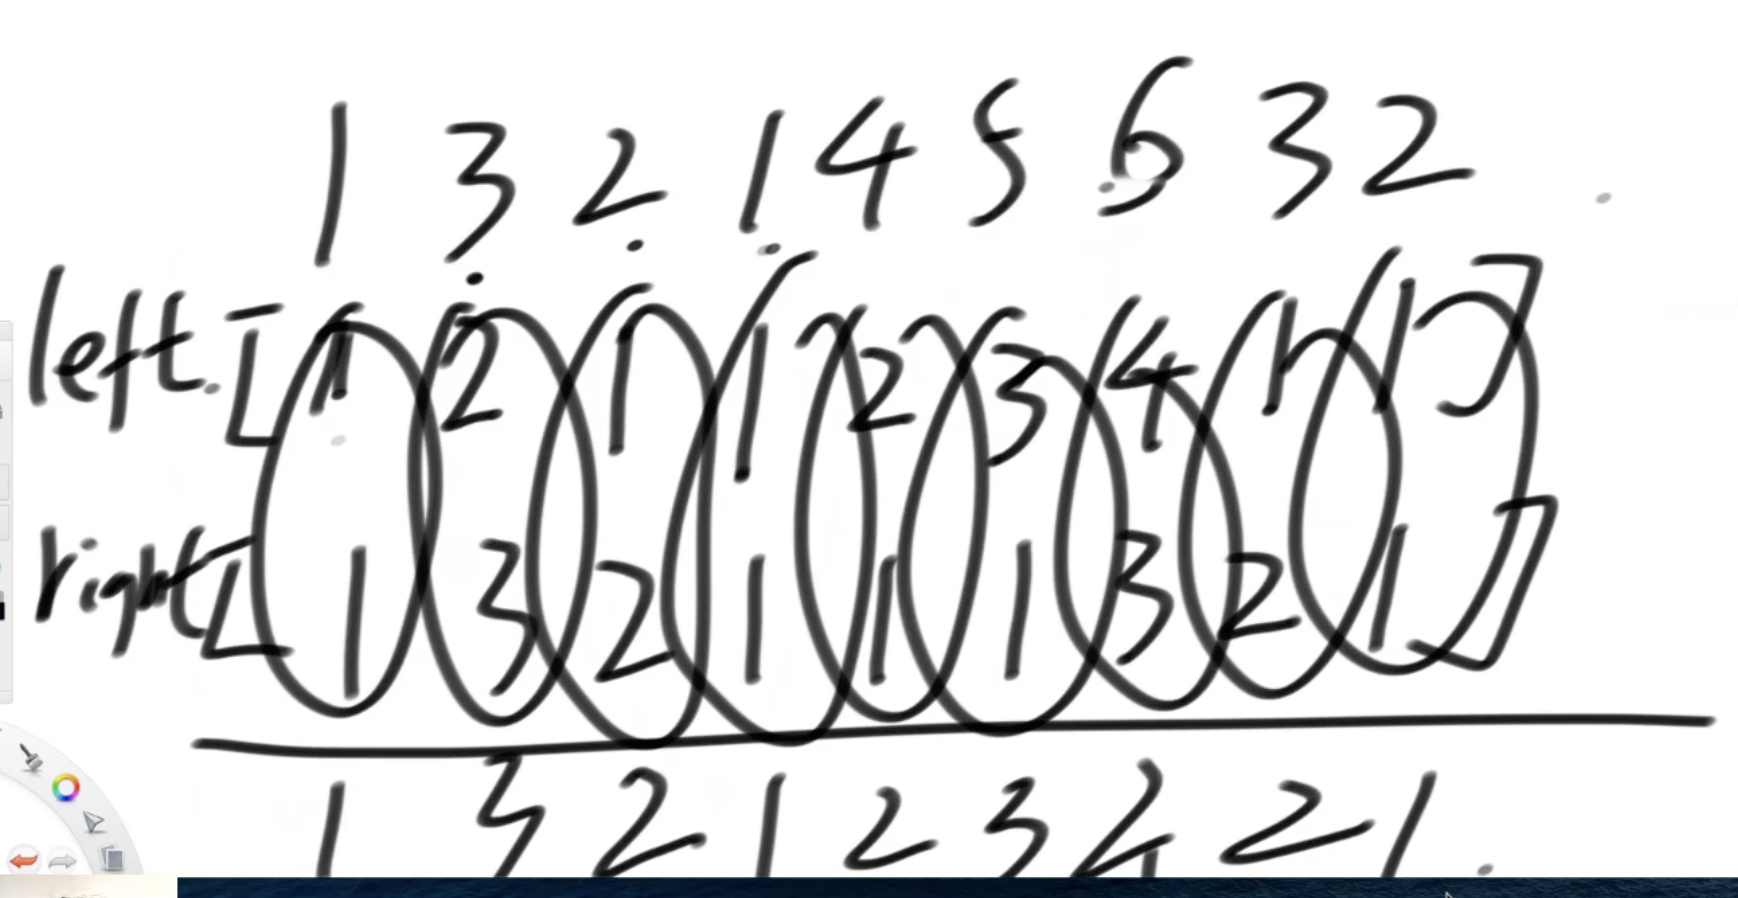 1 3 2 1 4 5 6 3 2
left [ 1 2 1 1 2 3 4 1 1 ]
right [ 1 3 2 1 1 1 3 2 1 ]
1 3 2 1 2 3 4 2 1